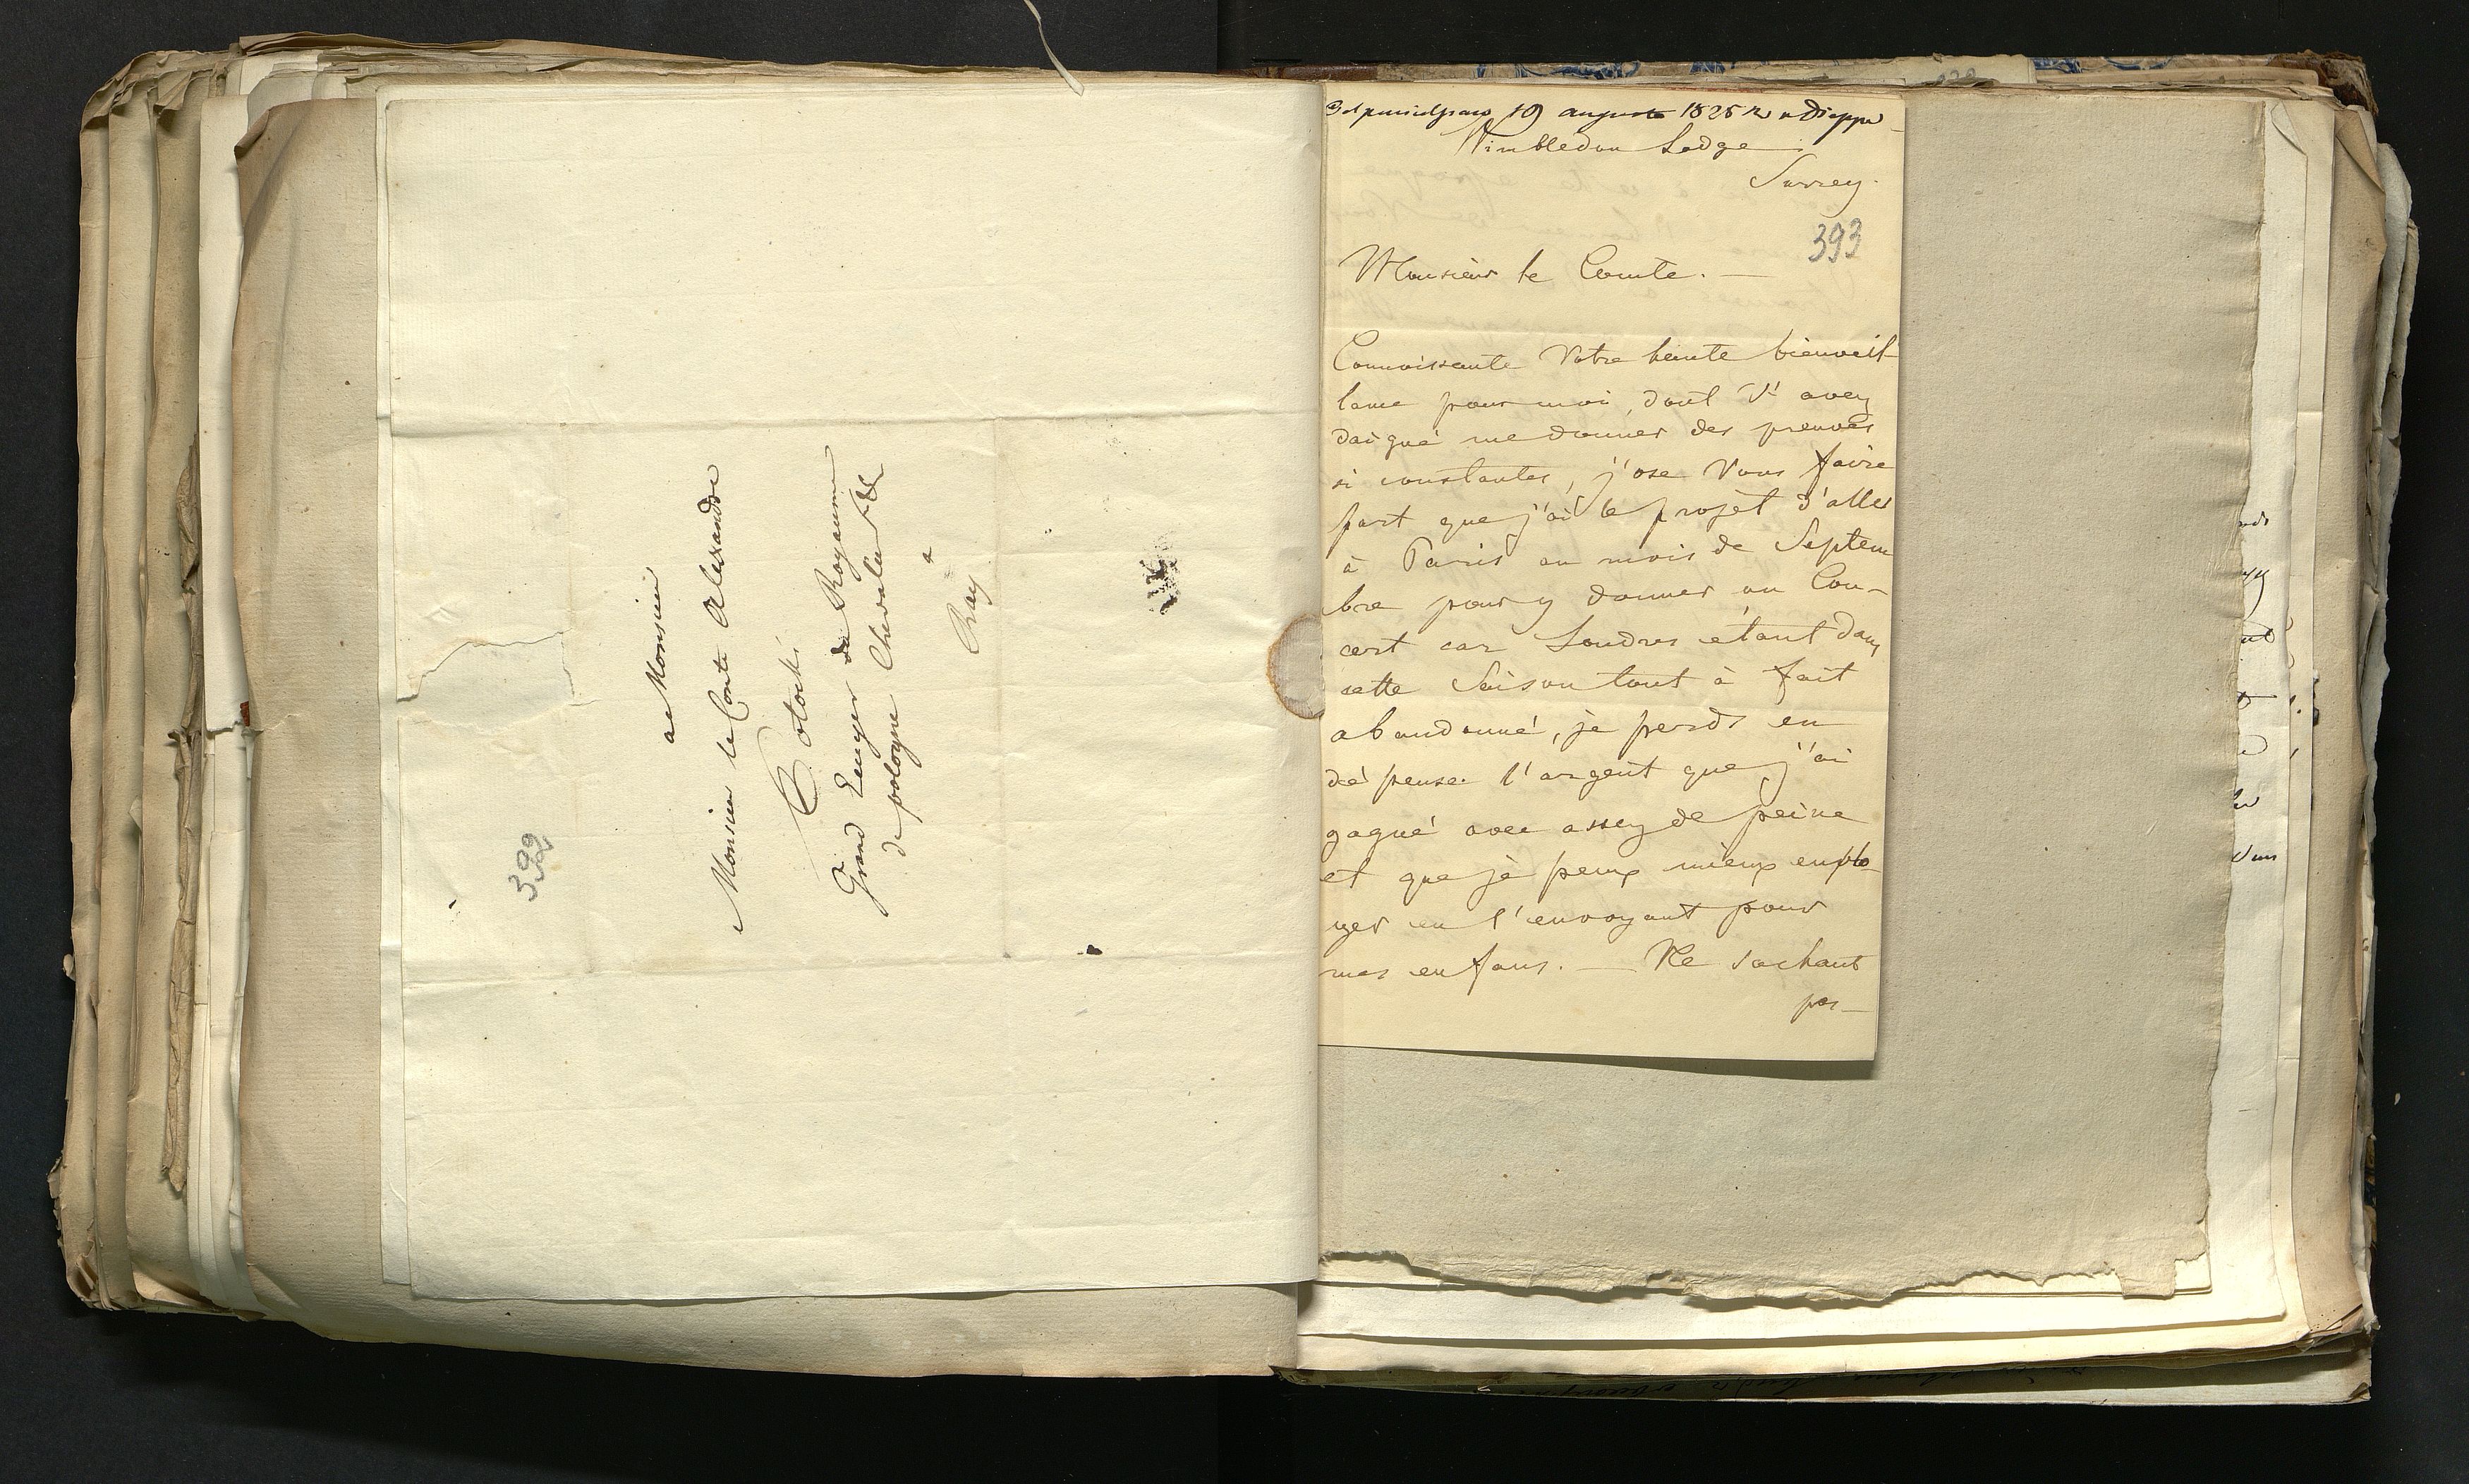 a Monsieur
Monsieur le Comte Alexandre
Potocki
Grand Ecuyer du Royaume
de pologne Chevalier &c
a
Ray
392
19 augusta 1825 Dieppe
Wimbledon Lodge
Surrey.
393
Monsieur le Comte. —
Connoissante Votre haute bienveil-
lance pour moi, dont Vs avez
daigné me donner des preuves
si constantes, j'ose Vous faire
part que j'ai le projet d'aller
à Paris au mois de Septem
bre pour y donner un Con-
cert car Londres étant dans
cette Saison tout à fait
abandonné, je perds en
dépense l'argent que j'ai
gagné avec assez de peine
et que je peux mieux emplo-
yer en l'envoyant pour
mes enfans. — Ne sachant
pas —